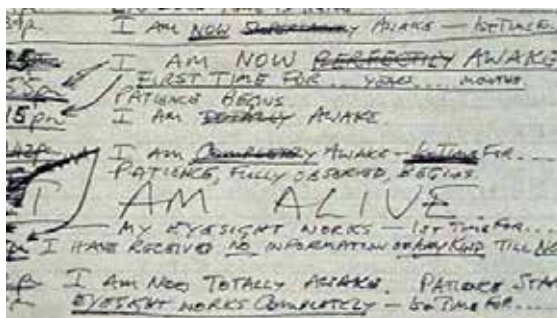 I AM NOW AWAKE — 1ST TIME
I AM NOW PERFECTLY AWAKE
FIRST TIME FOR ... YEARS .... MONTHS
PATIENCE BEGINS
15pm I AM TOTALLY AWAKE
I AM COMPLETELY AWAKE — 1ST TIME FOR ....
PATIENCE, FULLY OBSERVED, BEGINS
I AM ALIVE
MY EYESIGHT WORKS — 1ST TIME FOR ....
I HAVE RECEIVED NO INFORMATION OF ANY KIND TILL NO
I AM NOW TOTALLY AWAKE. PATIENCE STA
EYESIGHT WORKS COMPLETELY — 1ST TIME FOR ....